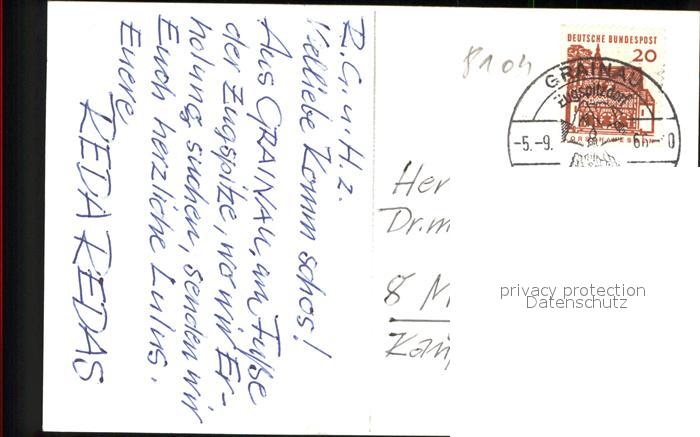 R.G. u. H. z.
Vielliebe Komm schos!
Aus GRAINAU, am Fuße
der Zugspitze, wo wir Er-
holung suchen, senden wir
Euch herzliche Lulus.
Euere
REDA REDAS
8104
DEUTSCHE BUNDESPOST
20
GRAINAU
Zugspitzdorf
-5.-9.
Her
Dr. m
8 M
privacy protection
Datenschutz